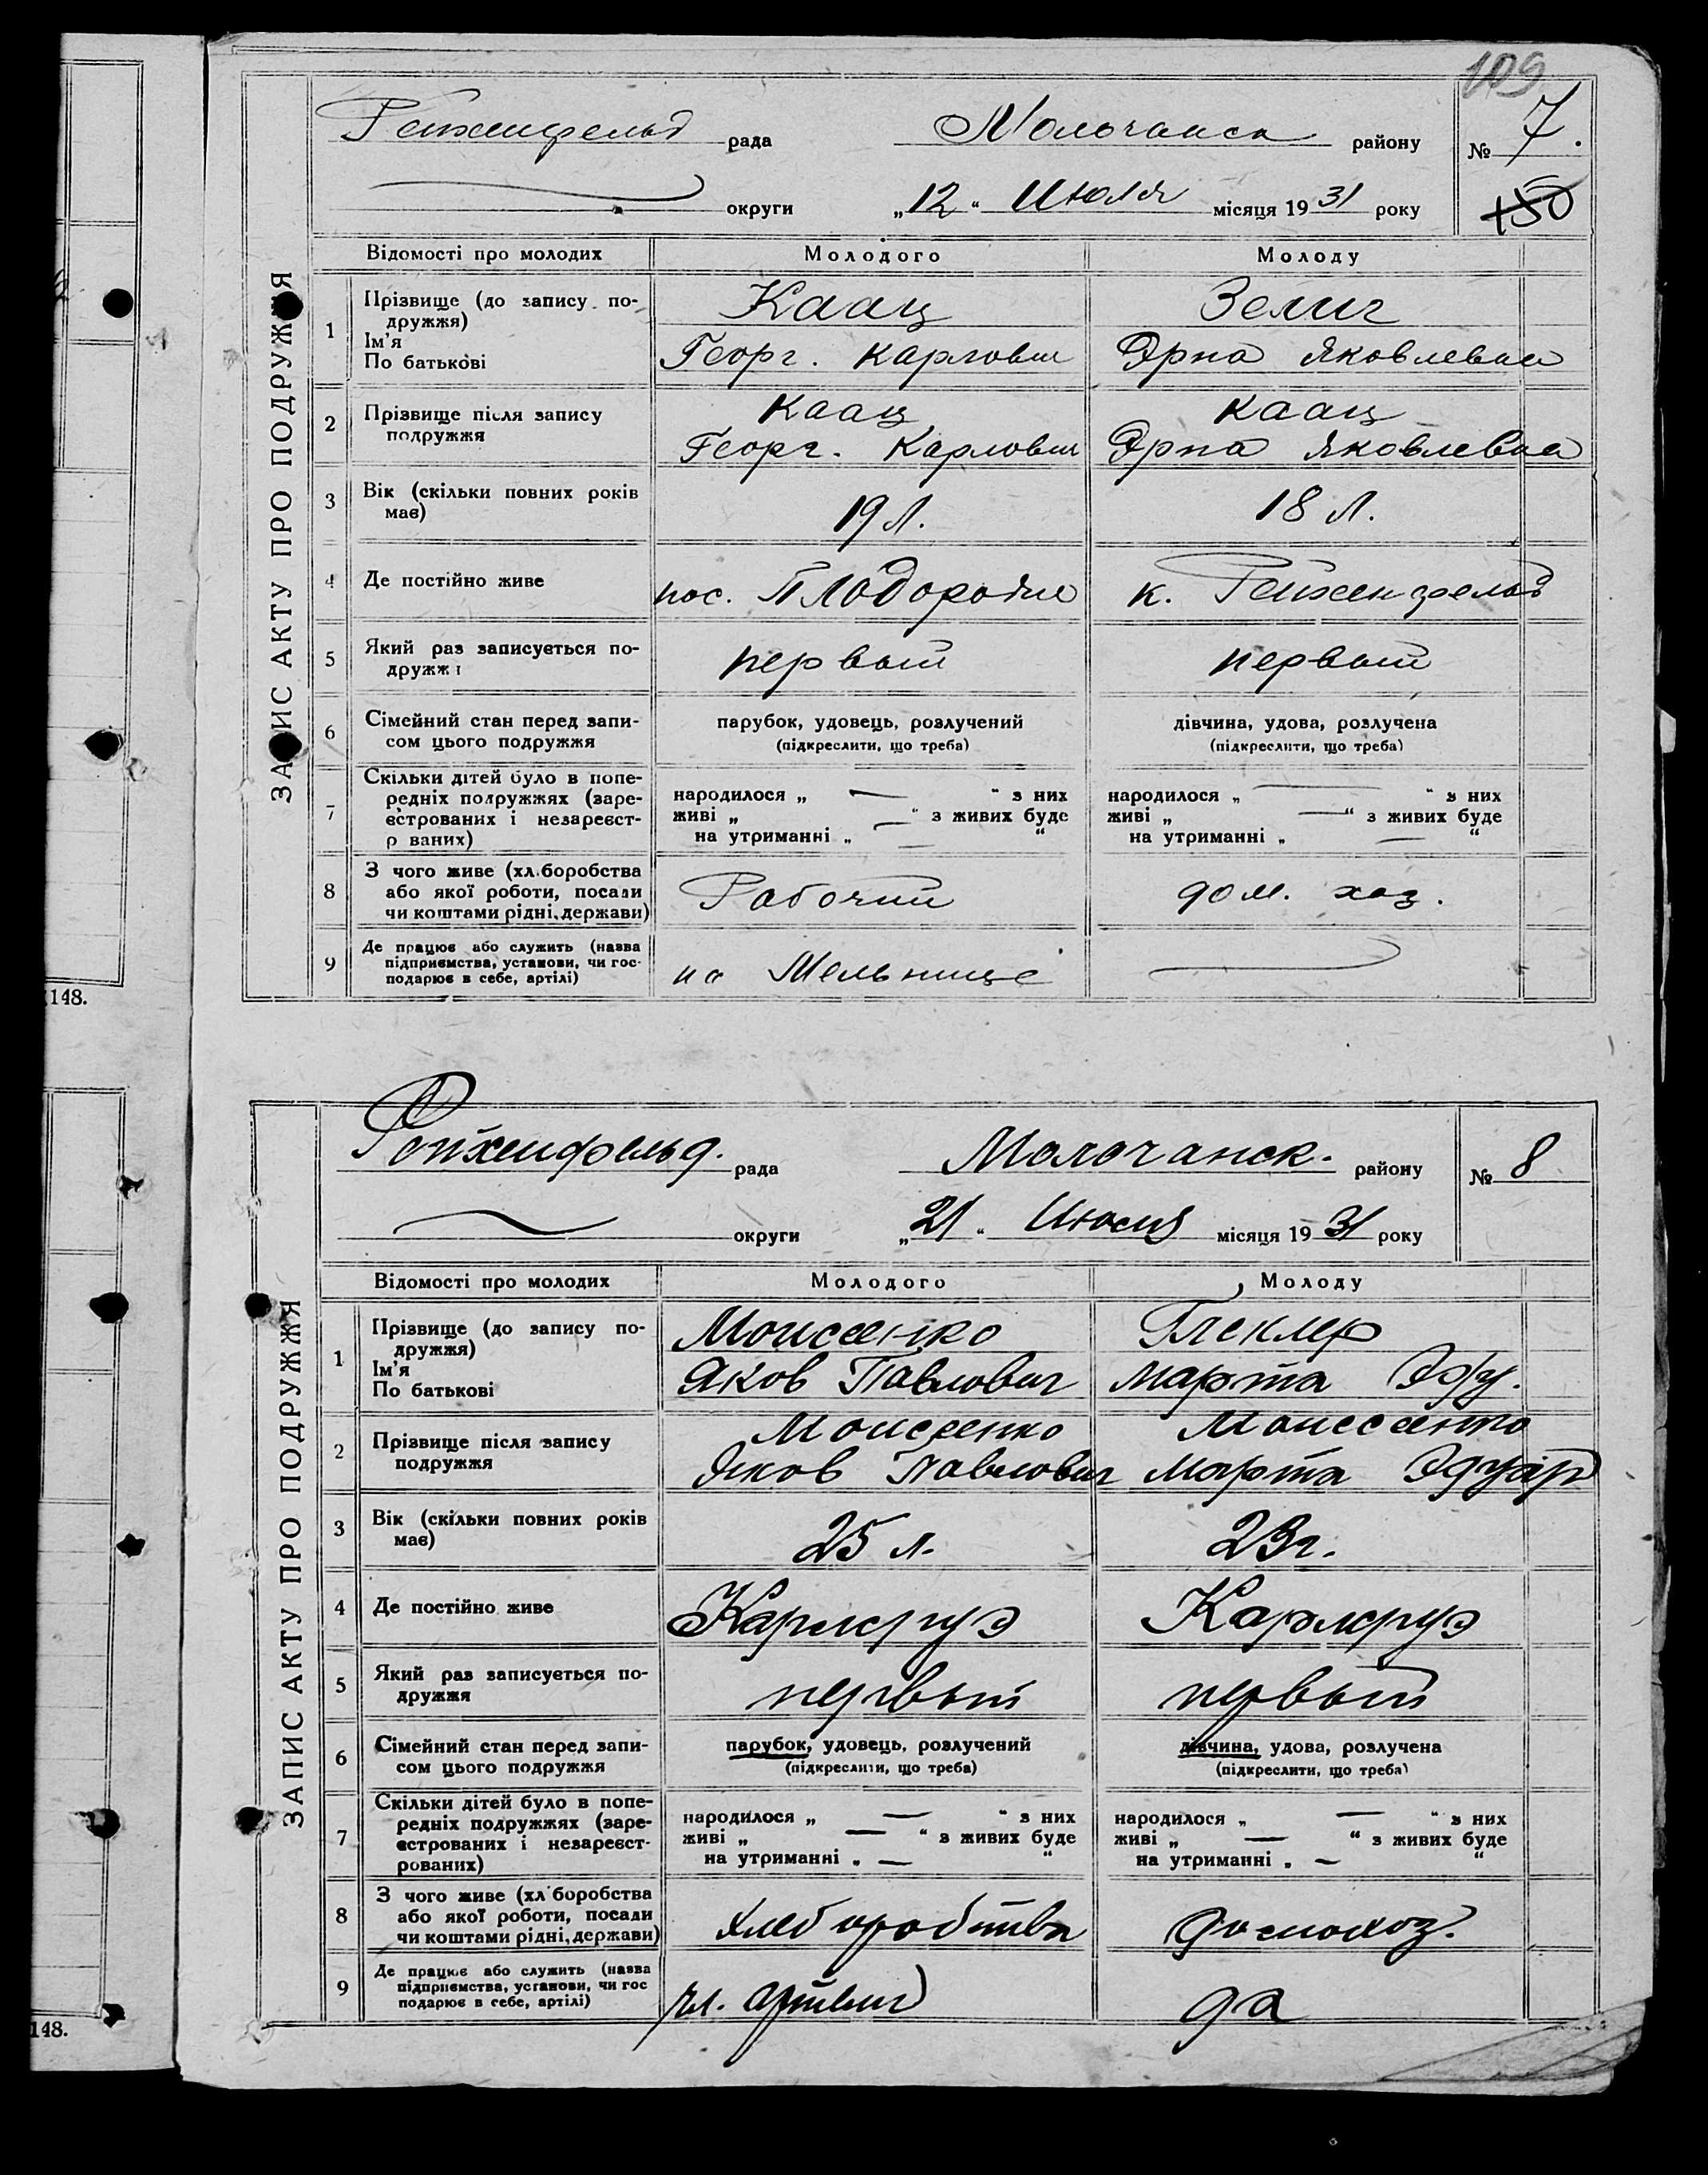 109
Рейхенфельд рада Молочанск району № 7.
округи „12“ Июля місяця 1931 року 150
ЗАПИС АКТУ ПРО ПОДРУЖЖЯ
Відомості про молодих Молодого Молоду
1 Прізвище (до запису по-
дружжя)
Ім'я
По батькові
Каац Зелиг
Георг. Карлович Эрна Яковлевна
2 Прізвище після запису
подружжя
Каац Каац
Георг. Карлович Эрна Яковлевна
3 Вік (скільки повних років
має)
19 л. 18 л.
4 Де постійно живе пос. Плодородие к. Рейхенфельд
5 Який раз записується по-
дружжя
первый первый
6 Сімейний стан перед запи-
сом цього подружжя
парубок, удовець, розлучений дівчина, удова, розлучена
(підкреслити, що треба) (підкреслити, що треба)
7 Скільки дітей було в попе-
редніх подружжях (заре-
єстрованих і незареєст-
р ваних)
народилося „ — “ з них народилося „ — “ з них
живі „ — “ з живих буде живі „ — “ з живих буде
на утриманні „ — “ на утриманні „ — “
8 З чого живе (хліборобства
або якої роботи, посади
чи коштами рідні, держави)
Рабочий дом. хоз.
9 Де працює або служить (назва
підприємства, установи, чи гос-
подарює в себе, артілі)
на Мельнице —
148.
Рейхенфельд. рада Молочанск. району № 8
округи „21“ Июля місяця 1931 року
ЗАПИС АКТУ ПРО ПОДРУЖЖЯ
Відомості про молодих Молодого Молоду
1 Прізвище (до запису по-
дружжя)
Ім'я
По батькові
Моисеенко Глеклер
Яков Павлович Марта Эду.
2 Прізвище після запису
подружжя
Моисеенко Моисеенко
Яков Павлович Марта Эдуар
3 Вік (скільки повних років
має)
25 л. 23 г.
4 Де постійно живе Карлсруэ Карлсруэ
5 Який раз записується по-
дружжя
первый первый
6 Сімейний стан перед запи-
сом цього подружжя
парубок, удовець, розлучений дівчина, удова, розлучена
(підкреслити, що треба) (підкреслити, що треба)
7 Скільки дітей було в попе-
редніх подружжях (заре-
єстрованих і незареєст-
рованих)
народилося „ — “ з них народилося „ — “ з них
живі „ — “ з живих буде живі „ — “ з живих буде
на утриманні „ — “ на утриманні „ — “
8 З чого живе (хліборобства
або якої роботи, посади
чи коштами рідні, держави)
хлеборобства домохоз.
9 Де працює або служить (назва
підприємства, установи, чи гос
подарює в себе, артілі)
чл. артели да
148.